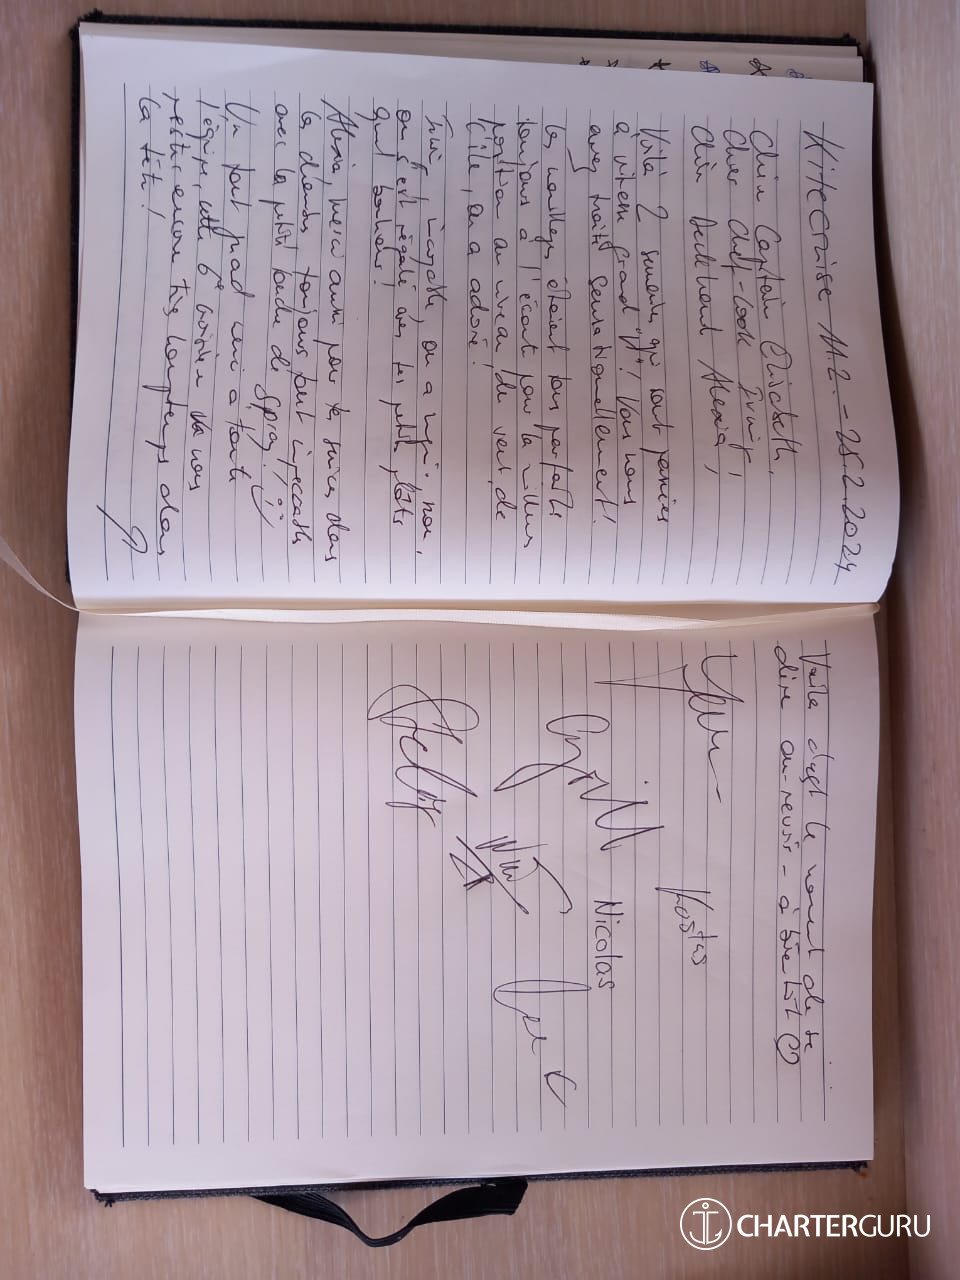 Kitecruise 11.2. - 25.2.2024
Chère Captain Elisabeth,
Cher chef-cook
Chère Alexia,
Voilà 2 semaines qui sont passées
à vitesse grand "V"! Vous nous
avez traité sensationellement!
Les étaient tous parfaits
toujours à l'écoute pour la meilleure
position au niveau de vent, de
l'île, on a adoré!
incroyable, on a
on s'est régalé avec tes petits plats
quel bonheur!
Alexia, merci aussi pour tes services dans
la chambre, toujours tout impeccable
avec la petite de Spray! :)
Un tout grand merci à toute
l'équipe, cette 6e croisière va nous
rester encore très longtemps dans
la tête!
Voilà déjà le moment de se
dire au-revoir - à bientôt ♡
Kostas
Cyrill
Nicolas